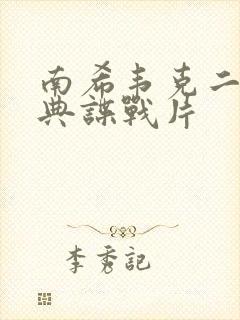 南希韦克二
典諜戰片
李秀記